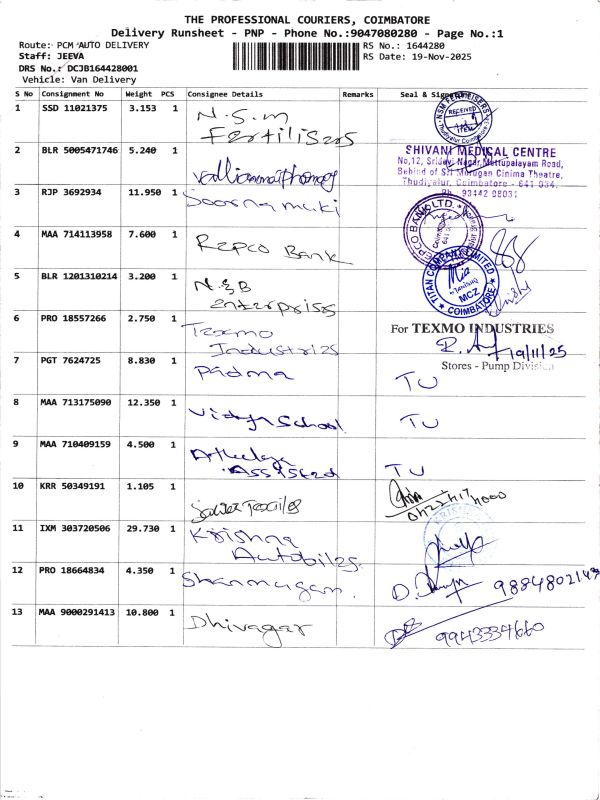 THE PROFESSIONAL COURIERS, COIMBATORE
Delivery Runsheet - PNP - Phone No.:9047080280 - Page No.:1
Route: PCM AUTO DELIVERY
RS No.: 1644280
Staff: JEEVA
RS Date: 19-Nov-2025
DRS No.: DCJB164428001
Vehicle: Van Delivery
S No Consignment No Weight PCS Consignee Details Remarks Seal & Sign
1 SSD 11021375 3.153 1 N.S.M
Fertilisers
NSM FERTILISERS
RECEIVED
2 BLR 5005471746 5.240 1
SHIVANI MEDICAL CENTRE
No,12, Sridevi Nagar, Mettupalayam Road,
Behind of Sri Murugan Cinima Theatre,
Thudiyalur, Coimbatore - 641 034.
Ph - 93442 98031
3 RJP 3692934 11.950 1
4 MAA 714113958 7.600 1 Repco Bank
REPCO BANK LTD.
5 BLR 1201310214 3.200 1 N.S.B
enterprises
TITAN COMPANY LIMITED
MCZ
COIMBATORE
6 PRO 18557266 2.750 1 Texmo
Industries
For TEXMO INDUSTRIES
19/11/25
Stores - Pump Division
7 PGT 7624725 8.830 1 Padma TU
8 MAA 713175090 12.350 1 Vidya School TU
9 MAA 710409159 4.500 1 TU
10 KRR 50349191 1.105 1
11 IXM 303720506 29.730 1 Krishna
Autobiles
12 PRO 18664834 4.350 1 Shanmugam.
13 MAA 9000291413 10.800 1 Dhivagar 9943334660